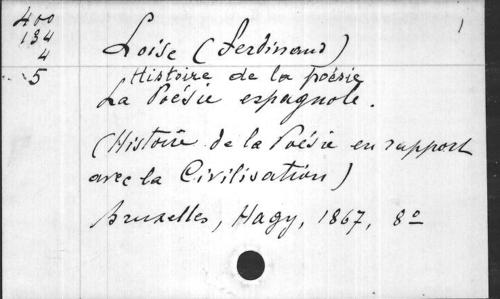 400
134
4
5
1
Loise (Ferdinand)
Histoire de la poésie
La Poésie espagnole.
(Histoire de la Poésie en rapport
avec la Civilisation)
Bruxelles, Hagy, 1867, 8º